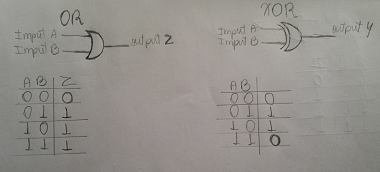 OR
Input A
Input B
output Z
A B Z
0 0 0
0 1 1
1 0 1
1 1 1
XOR
Input A
Input B
output Y
A B
0 0 0
0 1 1
1 0 1
1 1 0